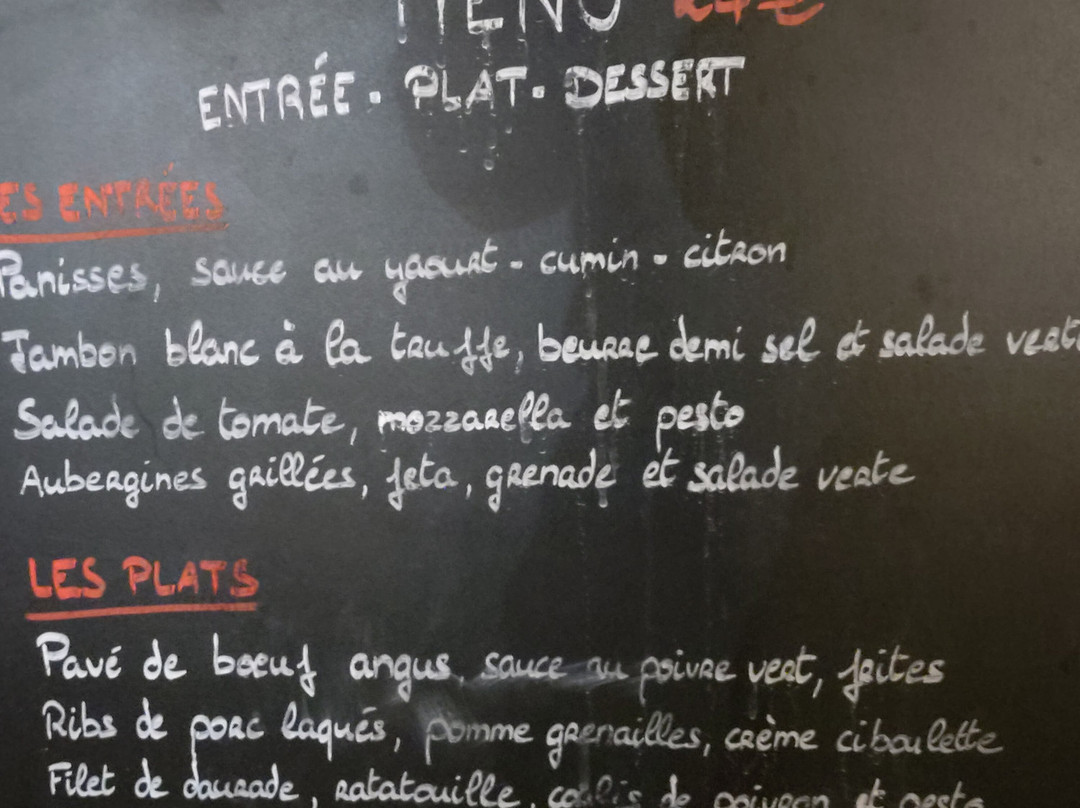 MENU 24€
ENTRÉE. PLAT. DESSERT
ES ENTRÉES
Panisses, sauce au yaourt - cumin - citron
Jambon blanc à la truffe, beurre demi sel et salade verte
Salade de tomate, mozzarella et pesto
Aubergines grillées, feta, grenade et salade verte
LES PLATS
Pavé de boeuf angus, sauce au poivre vert, frites
Ribs de porc laqués, pomme grenailles, crème ciboulette
Filet de daurade, ratatouille, coulis de poivron et pesto